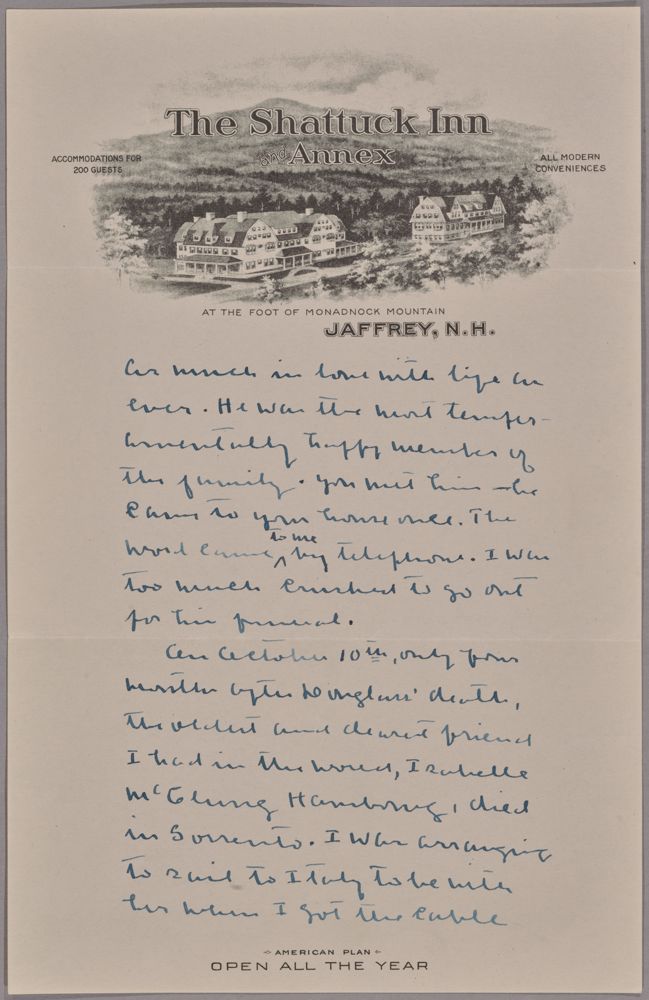 The Shattuck Inn
and Annex
ACCOMMODATIONS FOR
200 GUESTS
ALL MODERN
CONVENIENCES
AT THE FOOT OF MONADNOCK MOUNTAIN
JAFFREY, N.H.
as much in love with life as
ever. He was the most temper-
amentally happy member of
the family. You met him – he
came to your house once. The
word came to me by telephone. I was
too much crushed to go out
for his funeral.
On October 10th, only four
months after Douglass' death,
the oldest and dearest friend
I had in the world, Isabelle
McClung Hambourg, died
in Sorrento. I was arranging
to sail to Italy to be with
her when I got the cable
AMERICAN PLAN
OPEN ALL THE YEAR